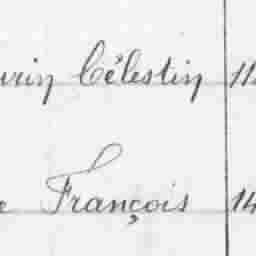 urin Célestin 11
e François 14